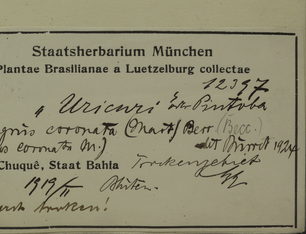 Staatsherbarium München
Plantae Brasilianae a Luetzelburg collectae
12397
"Uricuri
grus coronata (Mart) Becc. (Becc.)
s coronata M.) det Burret 1929
Chuquê, Staat Bahia Trockengebiet
1919/II Blüten.
trocken!